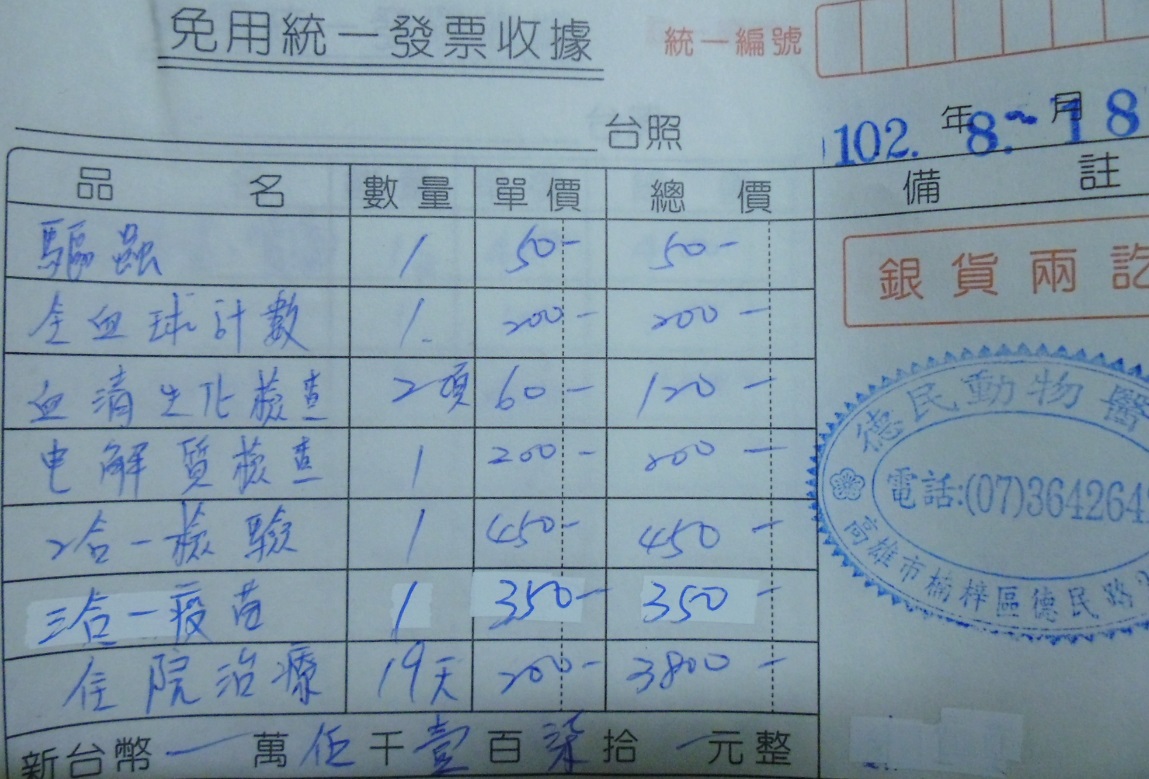 免用統一發票收據 統一編號
台照 102. 年 8. 月 18
品名 數量 單價 總價 備註
驅蟲 1 50- 50-
全血球計數 1. 200- 200-
血清生化檢查 2項 60- 120-
电解質檢查 1 200- 200-
2合一檢驗 1 450- 450-
三合一疫苗 1 350- 350-
住院治療 19天 200- 3800-
新台幣 一 萬 伍 千 壹 百 柒 拾 一 元整
銀貨兩訖
德民動物醫
電話:(07)364264
高雄市楠梓區德民路